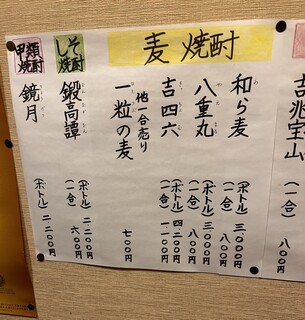 吉兆宝山
(一合)
八〇〇円
麦焼酎
和ら麦
(ボトル) 三、〇〇〇円
(一合) 八〇〇円
八重丸
(ボトル) 三、〇〇〇円
(一合) 八〇〇円
吉四六
(ボトル) 四、二〇〇円
(一合) 一、二〇〇円
他一合売り
一粒の麦
七〇〇円
しそ焼酎
鍛高譚
(ボトル) 二、二〇〇円
(一合) 六〇〇円
甲類焼酎
鏡月
(ボトル) 二、二〇〇円